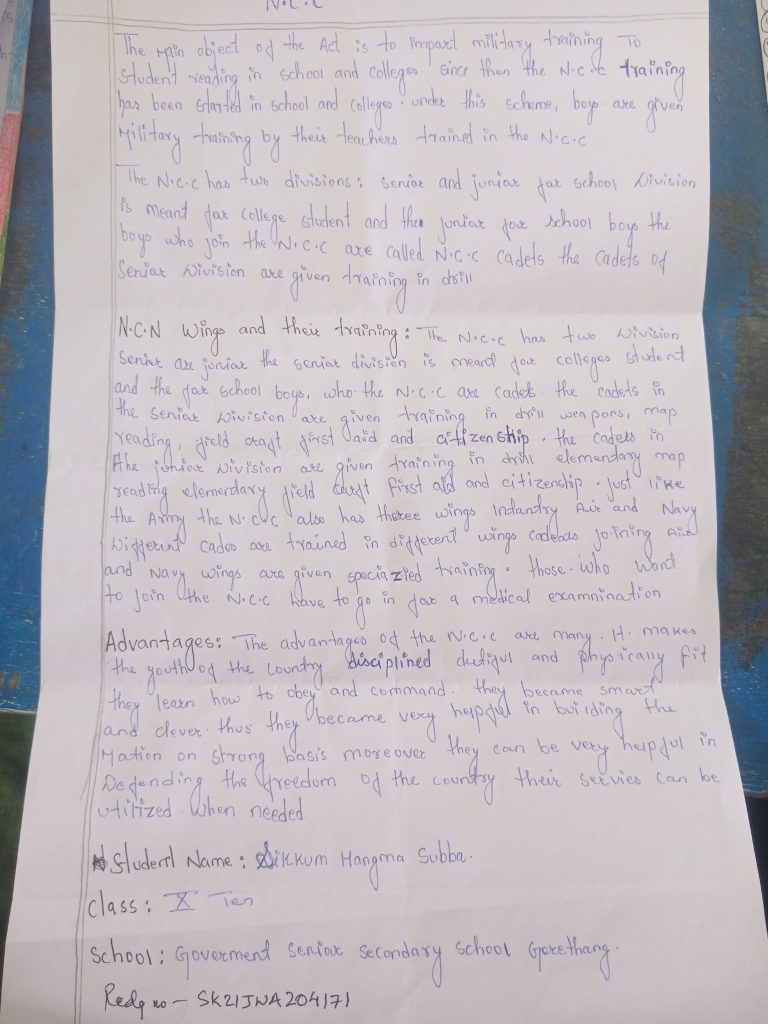 N.C.C
The Main object of the Act is to impart military training To
student reading in school and colleges. since then the N.C.C training
has been started in school and colleges. under this scheme, boys are given
Military training by their teachers trained in the N.C.C
The N.C.C has two divisions: senior and junior for school Division
is meant for college student and the junior for school boys the
boys who join the N.C.C are called N.C.C cadets the cadets of
Senior Division are given training in drill
N.C.N Wings and their training: The N.C.C has two Division
Senior are junior the senior division is meant for colleges student
and the for school boys, who the N.C.C are cadets. the cadets in
the senior Division are given training in drill weapons, map
reading, field craft first aid and citizenship. the cadets in
the junior Division are given training in drill elementary map
reading elementary field craft first aid and citizenship. just like
the Army the N.C.C also has theree wings Infantry Air and Navy
Different cades are trained in different wings cadeats joining Air
and Navy wings are given speciazied training. those who want
to join the N.C.C have to go in for a medical examnination
Advantages: The advantages of the N.C.C are many. It makes
the youth of the country disciplined dutiful and physically fit
they learn how to obey and command. they became smart
and clever. thus they became very helpful in building the
Nation on strong basis moreover they can be very helpful in
Defending the freedom of the country their servies can be
utilized. When needed
Student Name: Sikkum Hangma Subba.
Class: X Ten
School: Goverment Senior Secondary School Gerethang.
Redg no - SK21JWA204171